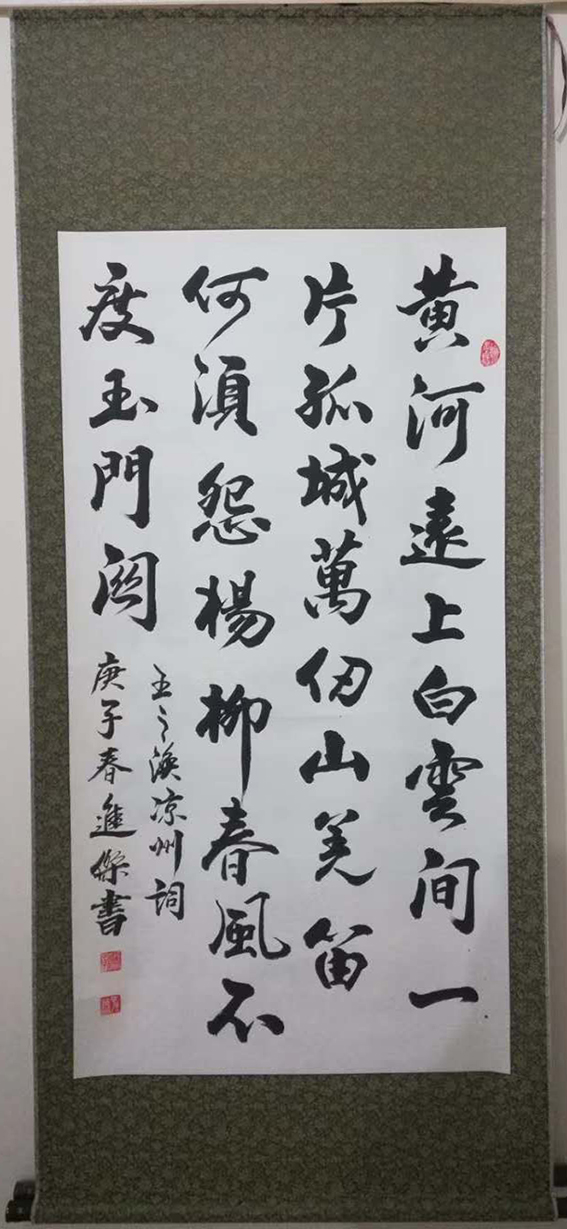 黄河遠上白雲间一
片孤城萬仞山羌笛
何須怨楊柳春風不
度玉門関
王之渙凉州詞
庚子春進傑書